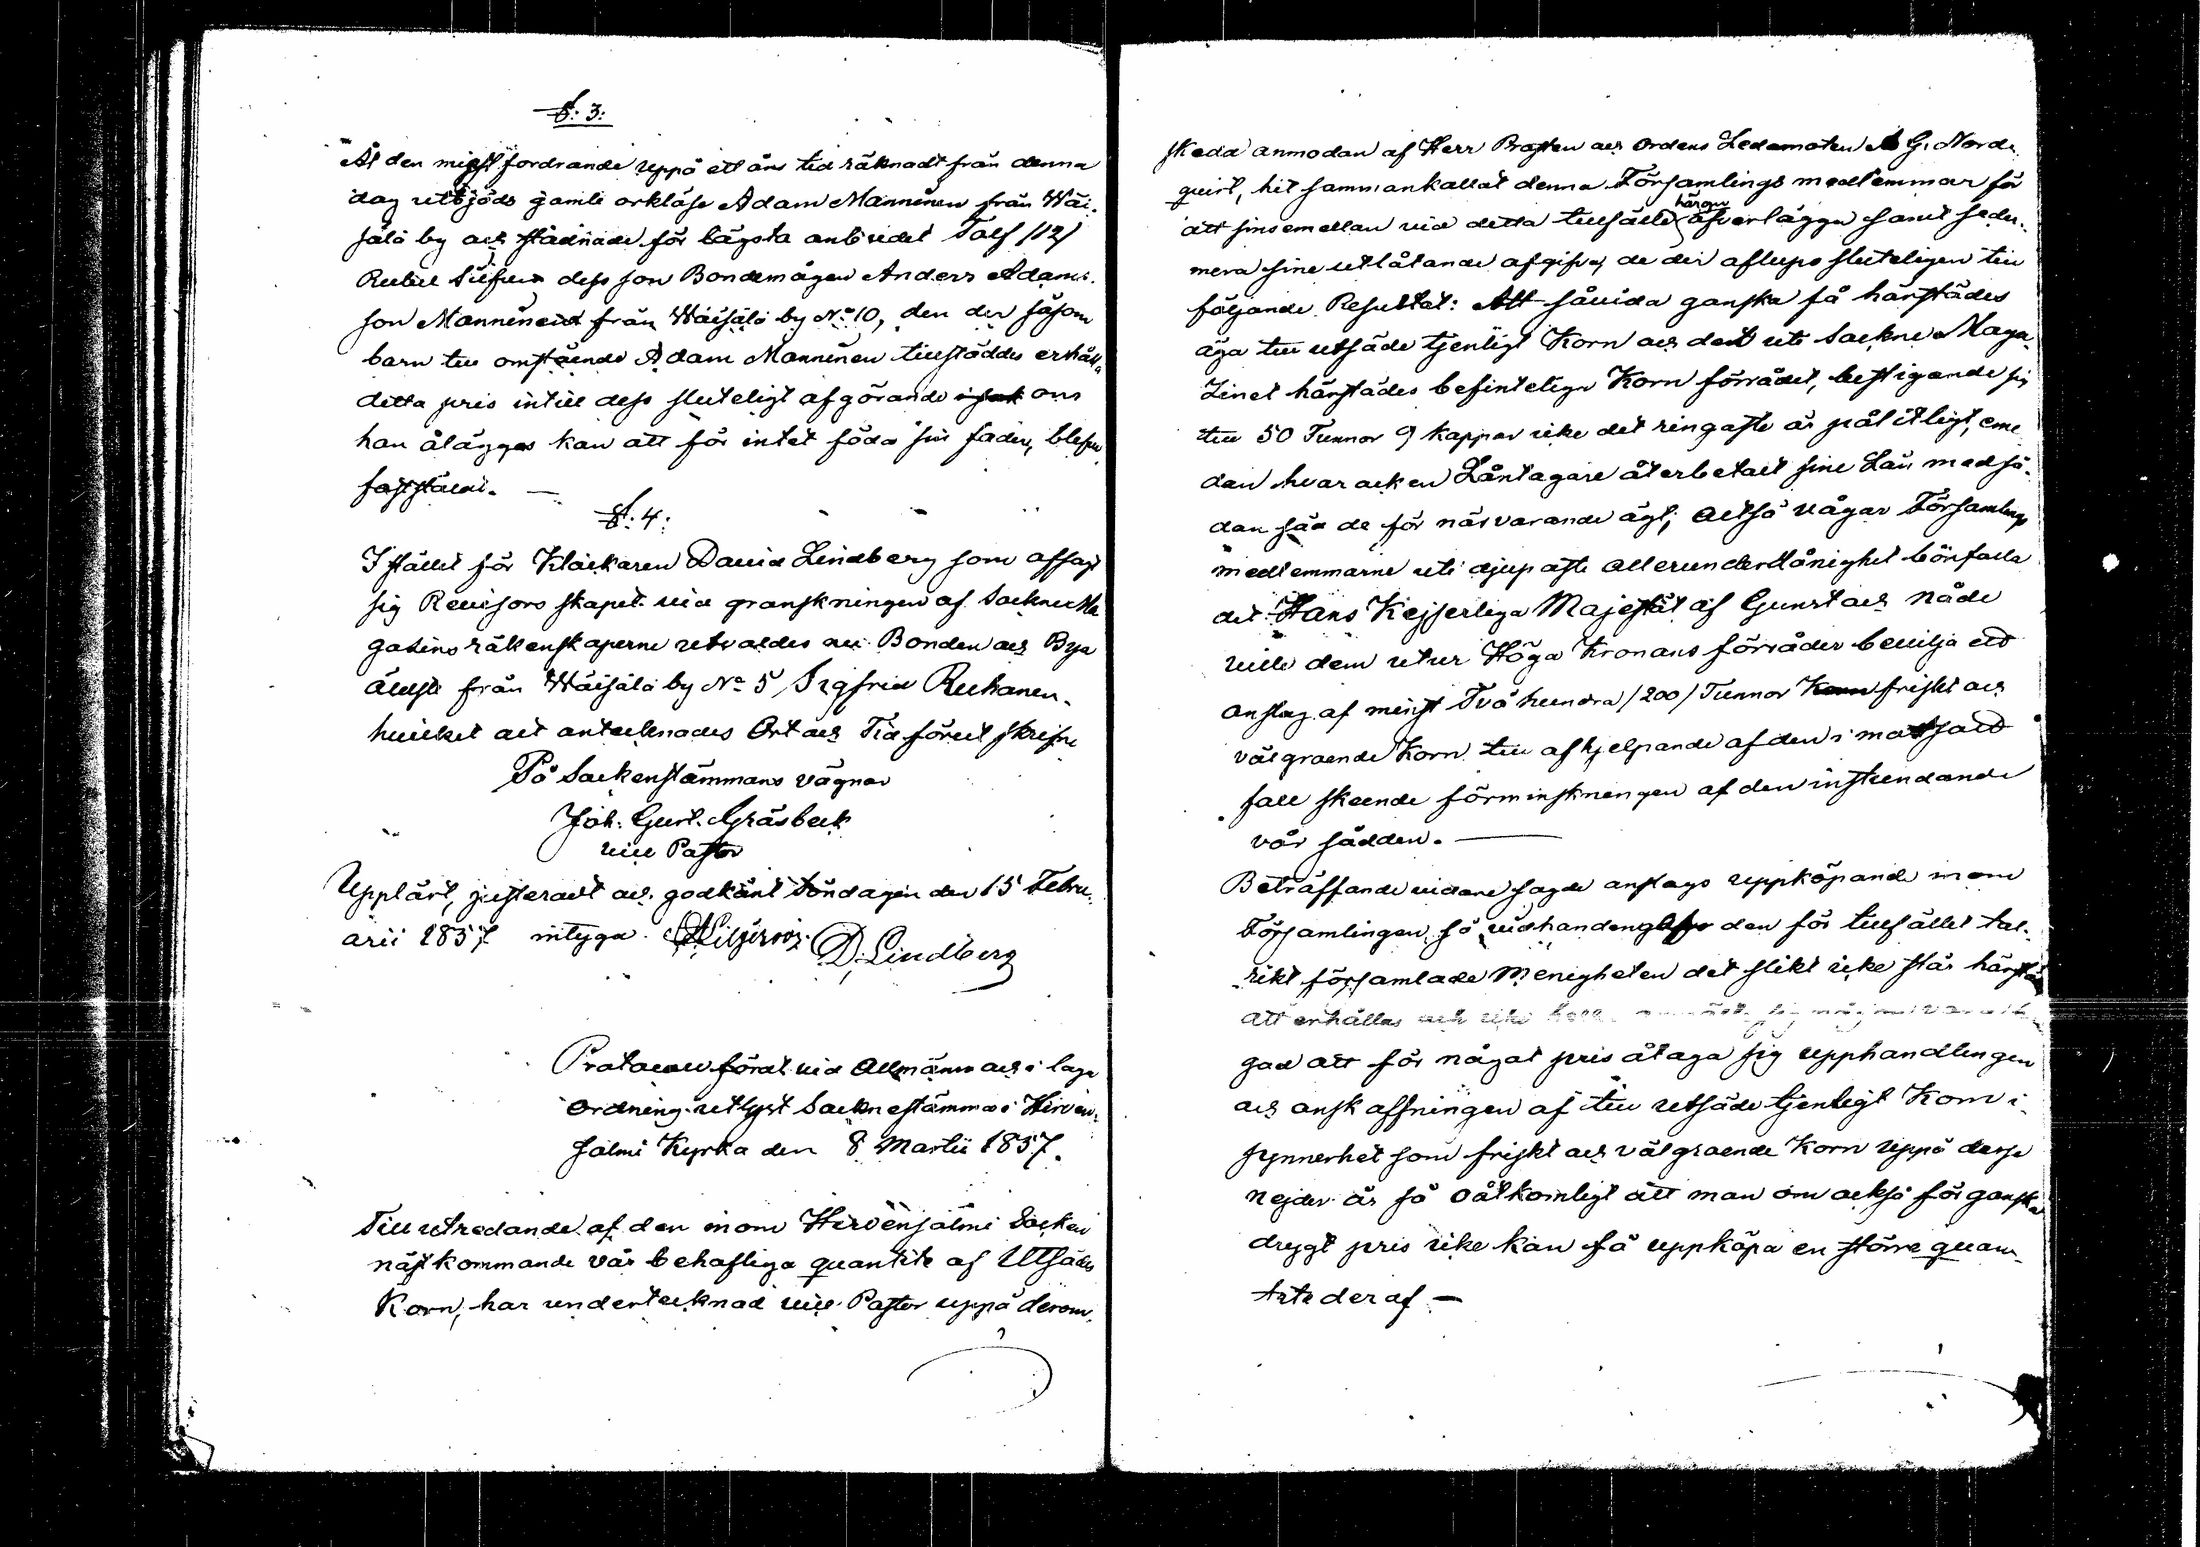 §: 3:
Åt den minst fordrande uppå ett års tid räknadt från denna
dag utbjöds gamle orklöse Adam Manninen från Wäi-
sälä by och stadnade för lägsta anbudet Tolf /12/
Rubel Silfver dess son Bondemågen Anders Adams-
son Manninen från Wäisälä by No 10, den der såsom
barn till omstående Adam Manninen tillstöddes erhålla
detta pris intill dess sluteligt afgörande om
han åläggas kan att för intet föda sin fader, blefve
fastställt. —
§: 4:
I stället för Klockaren David Lindberg som afsagt
sig Revisorsskapet vid granskningen af Sockne Ma
gasins räkenskaperne utvaldes nu Bonden och Bya
äldste från Wäisälä by No 5 Sigfrid Ruhanen,
hvilket alt antecknades Ort och Tid förut skrifne
På Sockenstämmans vägnar
Joh: Gust. Gräsbeck
Vice Pastor
Uppläst, justeradt och godkänt Söndagen den 15 Febru-
arii 1857 intyga. D. Lindberg
Protocoll fördt vid Allmänn och i laga
ordning utlyst Socknestämma i Hirven-
salmi Kyrka den 8 Martii 1857.
Till utredande af den inom Hirvensalmi Socken
nästkommande vår behöfliga quantite af Utsädes
Korn, har undertecknad Vice Pastor uppå derom
skedd anmodan af Herr Prosten och Ordens Ledamoten A G. Nord-
quist, hit sammankallat denna Församlings medlemmar för
härom
att sins emellan vid detta tillfälle öfverlägga samt seder-
mera sine utlåtande afgifva, de der aflupo sluteligen till
följande Resultat: Att såvida ganska få härstädes
äga till utsäde tjenligt Korn och det uti Sockne Maga-
zinet härstädes befinteliga Korn förrådet, bestigande sig
till 50 Tunnor 9 kappar icke det ringaste är pålitligt, eme-
dan hvar och en Låntagare återbetalt sine Lån med så-
dan säd de för närvarande ägt; altså vågar Församlings
medlemmarne uti djupaste allerunderdånighet bönfalla
det Hans Kejserliga Majestät af Gunst och Nåde
ville dem utur Höga Kronans förråder bevilja ett
anslag af minst Två hundra /200/ Tunnor friskt och
välgroende Korn till afhjelpande af den i motsatt
fall skeende förminskningen af den instundande
vår sådden. —
Beträffande vidare sagde anslags uppköpande inom
Församlingen, så den för tillfället tal-
rikt församlade Menigheten det slikt icke står härstädes
att erhållas och icke heller
gad att för något pris åtaga sig upphandlingen
och anskaffningen af till utsäde tjenligt Korn i
synnerhet som friskt och välgroende Korn uppå desse
nejder är så oåtkomligt att man om också för ganska
drygt pris icke kan få uppköpa en större quan-
tite deraf —